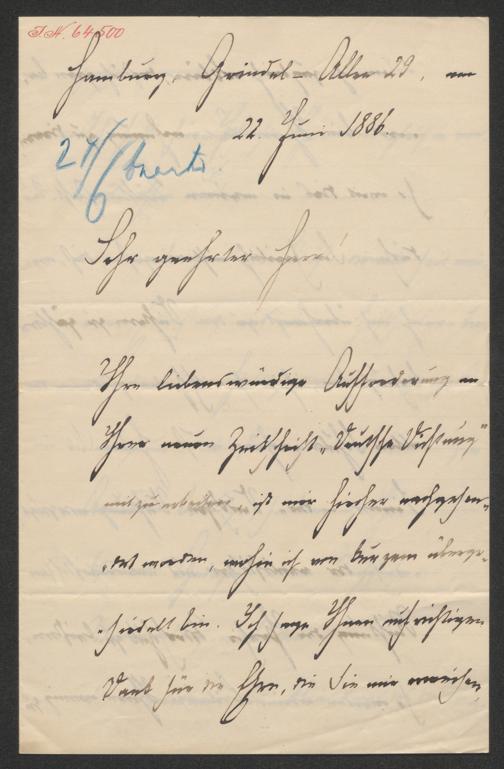 J.N. 64.500
Hamburg, Grindel-Allee 29, am
22. Juni 1886.
24/6 beantw.
Sehr geehrter Herr!
Ihre liebenswürdige Aufforderung an
Ihrer neuen Zeitschrift „Deutsche Dichtung"
mitzuarbeiten, ist mir hierher nachgesen-
det worden, wohin ich vor kurzem überge-
siedelt bin. Ich sage Ihnen aufrichtigen
Dank für die Ehre, die Sie mir erweisen,